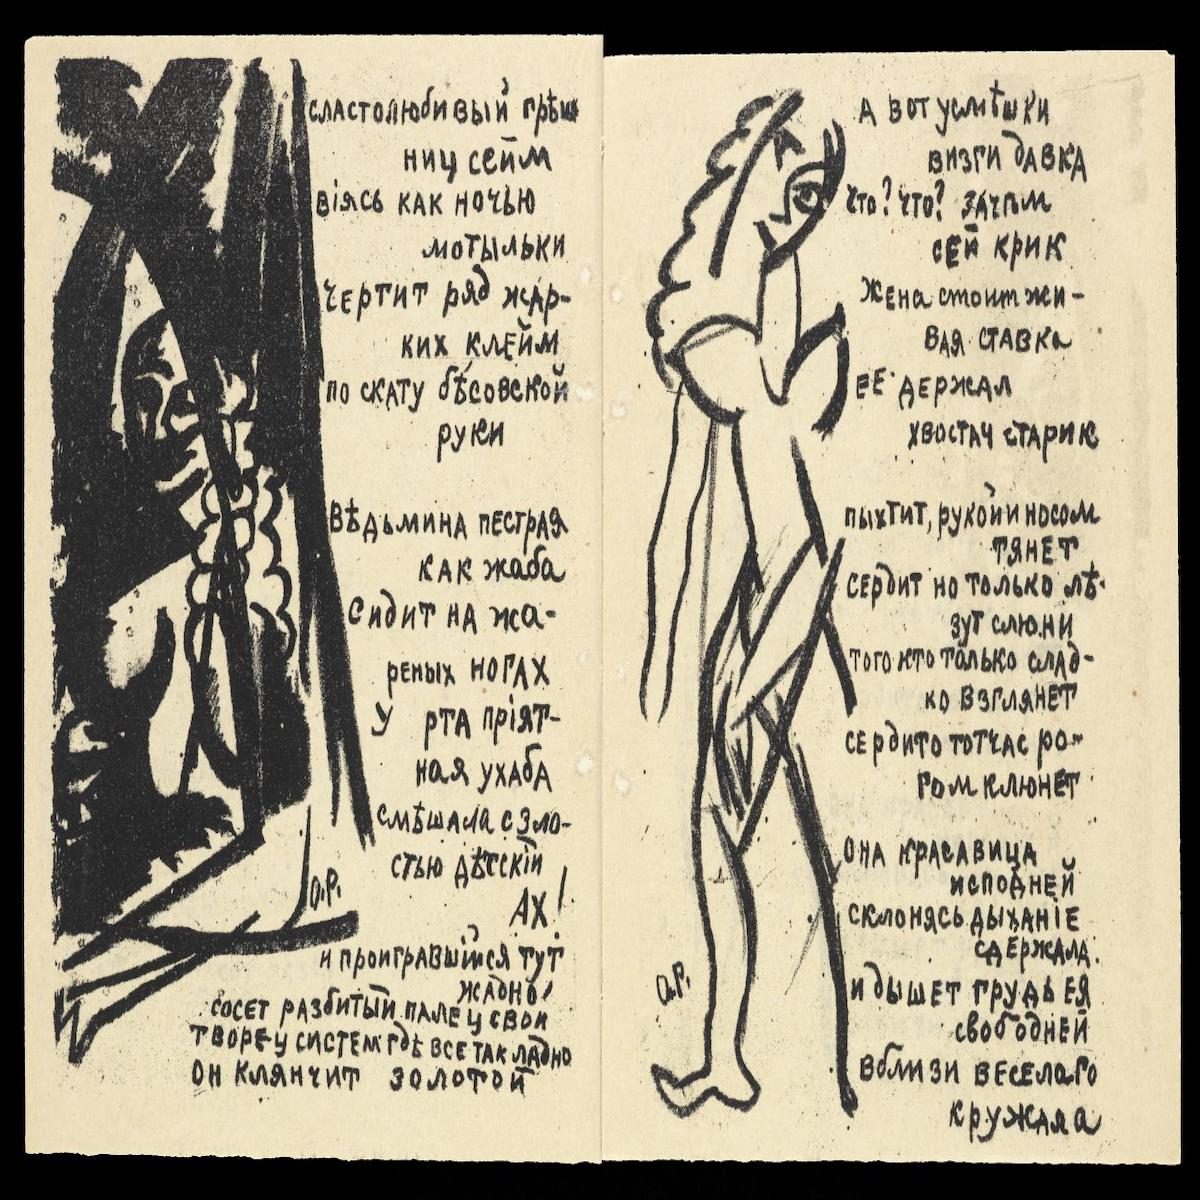 сластолюбивый грѣш
ниц сейм
віясь как ночью
мотыльки
чертит ряд жар-
ких клейм
по скату бѣсовской
руки
Вѣдьмина пестрая
как жаба
Сидит на жа-
реных ногах
У рта пріят-
ная ухаба
смѣшала с зло-
стью дѣтскій
АХ!
О.Р.
и проигравшійся тут
жадно
сосет разбитый палец свой
творец систем гдѣ все так ладно
он клянчит золотой
А вот усмѣшки
визги давка
что? что? зачѣм
сей крик
Жена стоит жи-
вая ставка
ЕЕ держал
хвостач старик
пыхтит, рукой и носом
тянет
сердит но только лѣ-
зут слюни
того кто только слад-
ко взглянет
сердито тотчас ро-
гом клюнет
она красавица
исподней
склонясь дыханіе
сдержала.
и дышет грудь ея
свободней
вблизи веселаго
кружала
О.Р.